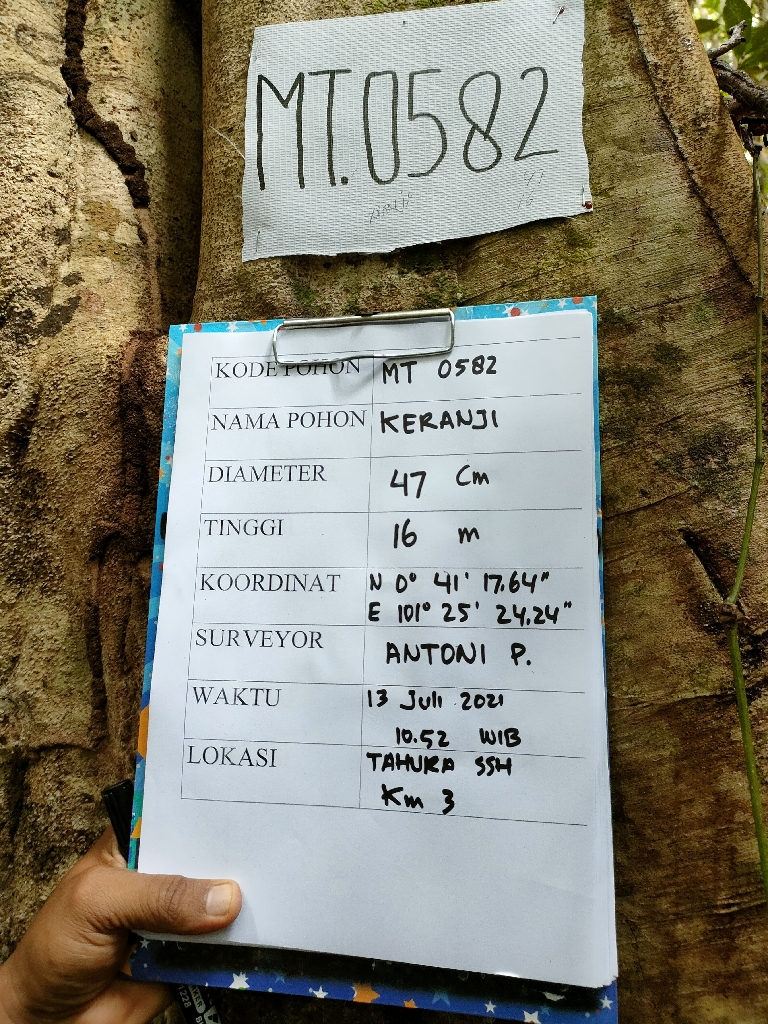 MT.0582
KODE POHON MT 0582
NAMA POHON KERANJI
DIAMETER 47 Cm
TINGGI 16 m
KOORDINAT N 0° 41' 17.64"
E 101° 25' 24.24"
SURVEYOR ANTONI P.
WAKTU 13 Juli 2021
10.52 WIB
LOKASI TAHURA SSH
Km 3